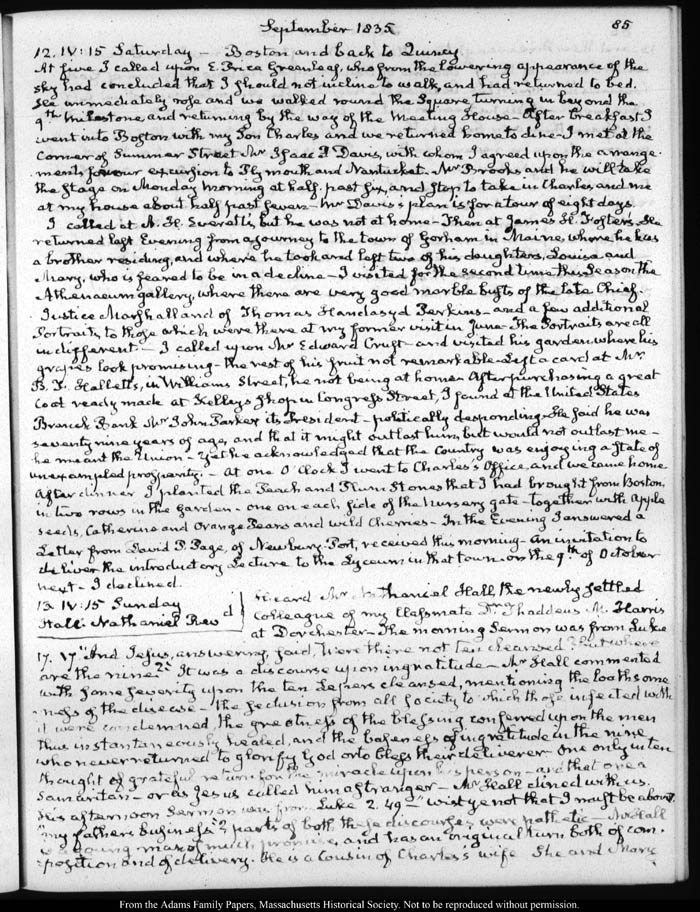 September 1835
85
12. IV: 15 Saturday — Boston and back to Quincy
At five I called upon E. Price Greenleaf, who from the lowering appearance of the
sky had concluded that I should not incline to walk, and had returned to bed.
He immediately rose and we walked round the Square turning in beyond the
9th milestone, and returning by the way of the Meeting House — After breakfast I
went into Boston with my Son Charles and we returned home to dine — I met at the
corner of Summer Street Mr Isaac P. Davis, with whom I agreed upon the arrange-
ments for our excursion to Plymouth and Nantucket — Mr Brooks and he will take
the Stage on Monday morning at half past six, and stop to take in Charles and me
at my house about half past seven — Mr Davis's plan is for a tour of eight days.
I called at A. H. Everett's, but he was not at home — Then at James H. Foster's. He
returned last Evening from a journey to the town of Gorham in Maine, where he has
a brother residing, and where he took and left two of his daughters, Louisa and
Mary, who is feared to be in a decline — I visited for the second time this Season the
Athenaeum gallery, where there are very good marble busts of the late Chief-
Justice Marshall and of Thomas Handasyd Perkins — and a few additional
Portraits to those which were there at my former visit in June — The Portraits are all
indifferent — I called upon Mr Edward Cruft — and visited his garden where his
grapes look promising — the rest of his fruit not remarkable — Left a card at Mr
B. F. Hallett's, in Williams Street, he not being at home — After purchasing a great
Coat ready made at Kelley's shop in Congress Street, I found at the United States
Branch Bank Mr John Parker its President — politically desponding — He said he was
seventy nine years of age, and that it might outlast him, but would not outlast me —
he meant the Union — Yet he acknowledged that the Country was enjoying a State of
unexampled prosperity. — At one O'Clock I went to Charles's Office, and we came home
After dinner I planted the Peach and Plum Stones that I had brought from Boston,
in two rows in the Garden — one on each side of the nursery gate — together with Apple
seeds, Catherine and Orange Pears and wild Cherries — In the Evening I answered a
Letter from David P. Page, of Newbury-Port, received this morning — an invitation to
deliver the introductory Lecture to the Lyceum in that town on the 9th of October
next — I declined.
13. IV: 15 Sunday
Hall. Nathaniel Revd
Heard Mr Nathaniel Hall, the newly settled
Colleague of my Classmate Dr Thaddeus M. Harris
at Dorchester — The morning Sermon was from Luke
17. 17 "And Jesus, answering, said, Were there not ten cleansed? but where
are the nine?" It was a discourse upon ingratitude — Mr Hall commented
with some severity upon the ten Lepers cleansed, mentioning the loathsome
-ness of the disease — the seclusion from all Society to which those infected with
it were condemned, the greatness of the blessing conferred upon the men
thus instantaneously healed, and the baseness of ingratitude in the nine
who never returned to glorify God or to bless their deliverer — One only in ten
thought of grateful return for the miracle upon his person — and that one a
Samaritan — or as Jesus called him a stranger — Mr Hall dined with us.
His afternoon Sermon was from Luke 2. 49 — "wist ye not that I must be about
"my father's business?" parts of both these discourses were pathetic — Mr Hall
is a young man of much promise, and has an original turn both of com-
-position and of delivery. He is a Cousin of Charles's wife She and Mary
From the Adams Family Papers, Massachusetts Historical Society. Not to be reproduced without permission.